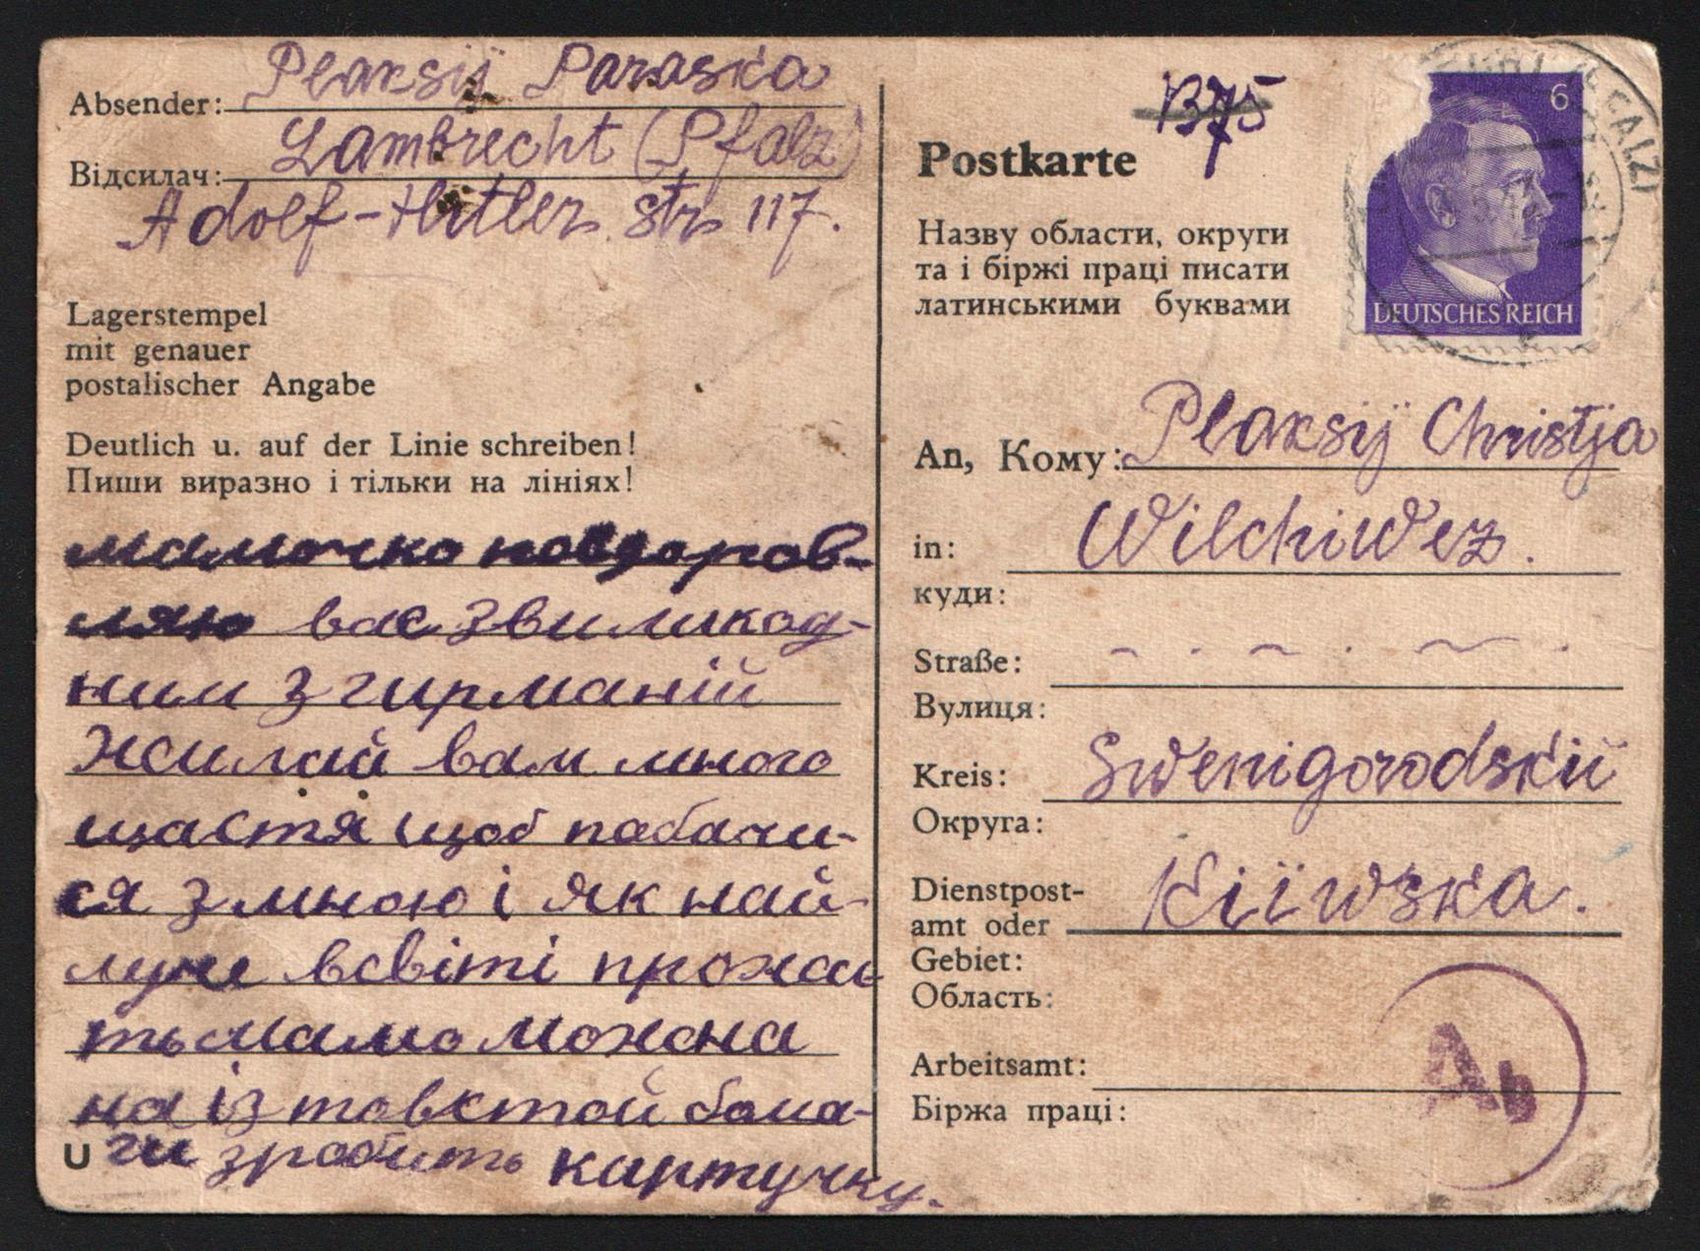 Absender: Plaksij Paraska
Відсилач: Lambrecht (Pfalz)
Adolf-Hitler str 117.
Lagerstempel
mit genauer
postalischer Angabe
Deutlich u. auf der Linie schreiben!
Пиши виразно і тільки на лініях!
мамочко поздоров-
ляю вас звиликод-
ним з гирманій
Жилаю вам много
щастя щоб побачи-
ся змною і як най-
лучи всвіті прожи-
ть мамо можна
на із товстой бома-
U ги зробить картучку.
B75
Postkarte
Назву области, округи
та і біржі праці писати
латинськими буквами
6
DEUTSCHES REICH
An, Кому: Plaksij Christja
in: Wilchiwez.
куди:
Straße:
Вулиця:
Kreis: Swenigorodskij
Округа:
Dienstpost-
amt oder Kiïwska.
Gebiet:
Область:
Arbeitsamt:
Біржа праці:
Ab